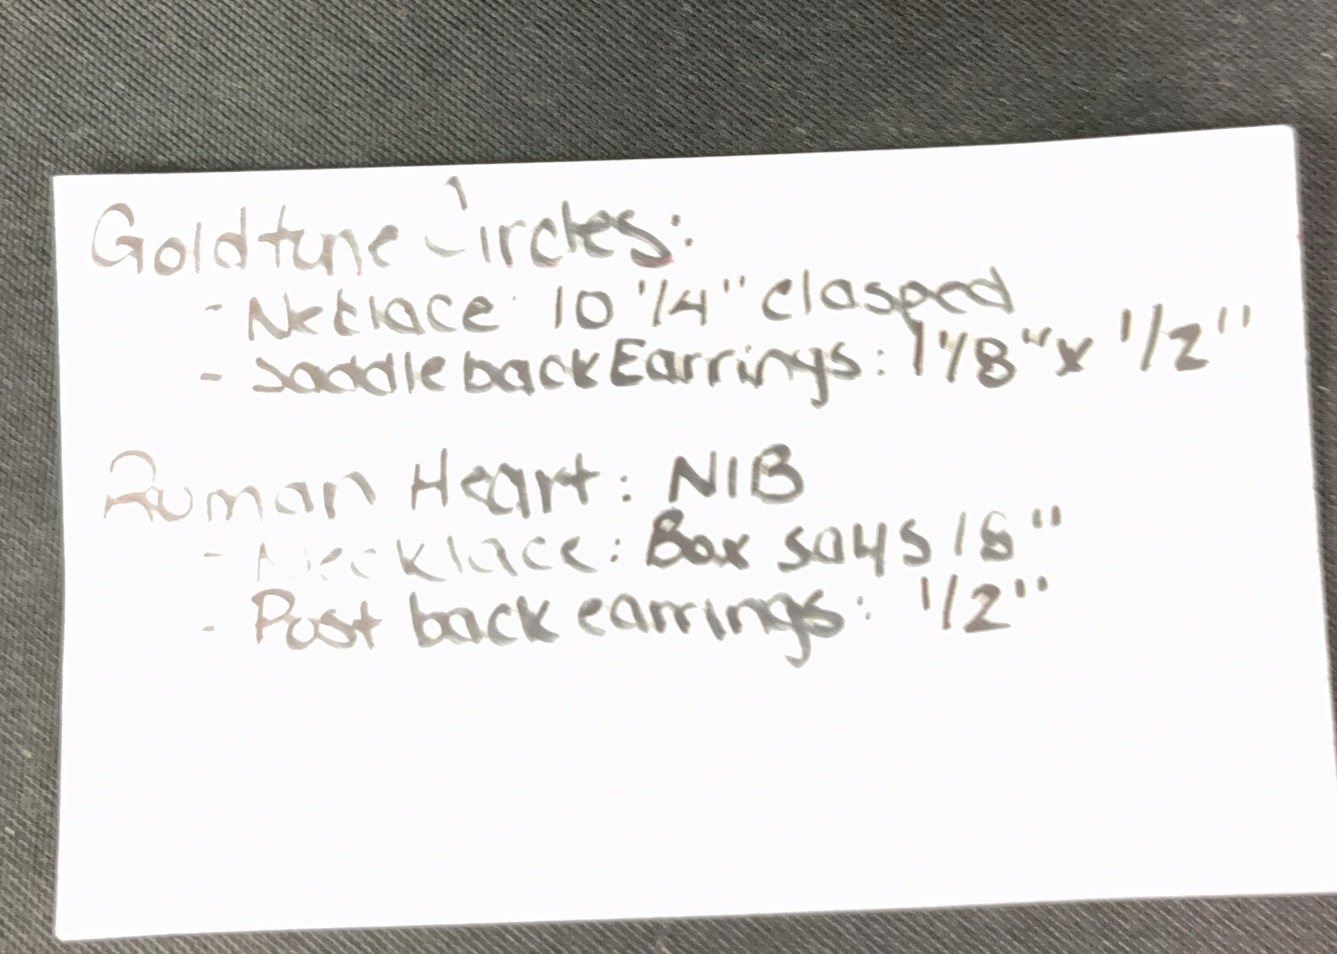 Goldtone Circles:
- Necklace: 10 1/4" clasped
- Saddleback Earrings: 1 1/8" x 1/2"
Roman Heart: NIB
- Necklace: Box says 18"
- Post back earrings: 1/2"